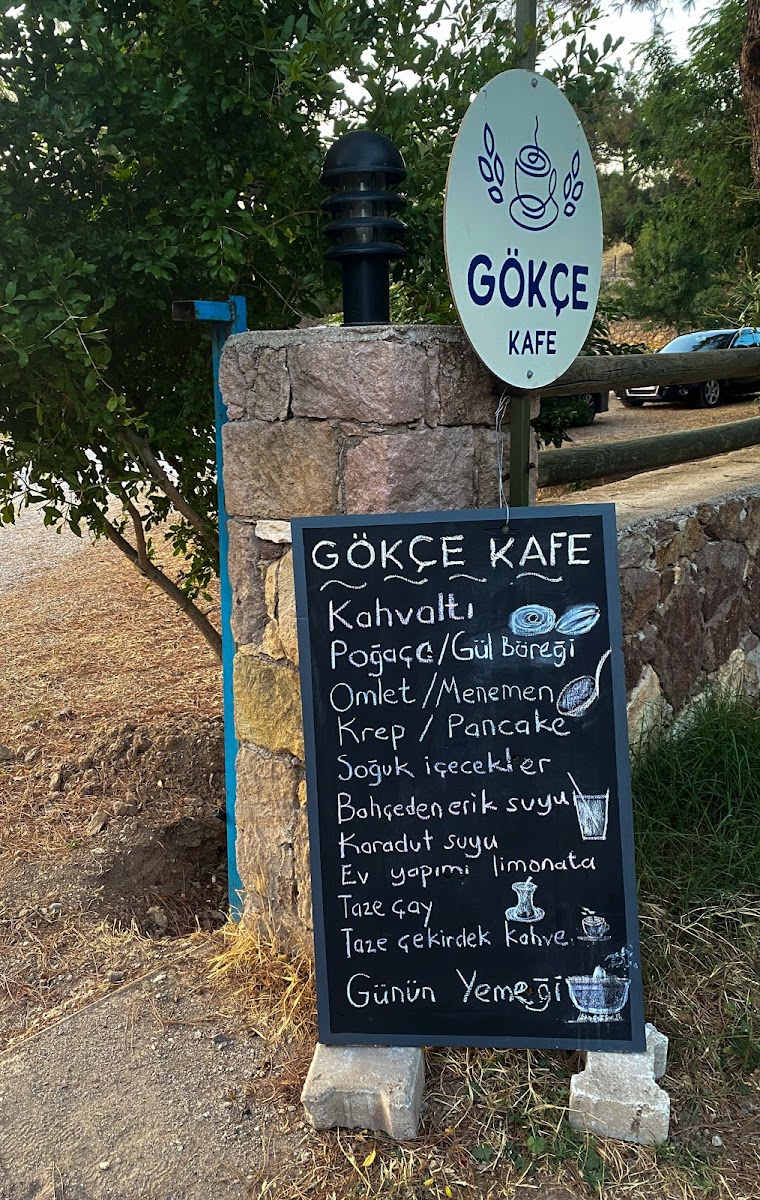 GÖKÇE
KAFE
GÖKÇE KAFE
Kahvaltı
Poğaça/Gül Böreği
Omlet/Menemen
Krep / Pancake
Soğuk içecekler
Bahçeden erik suyu
Karadut suyu
Ev yapımı limonata
Taze çay
Taze çekirdek kahve
Günün Yemeği